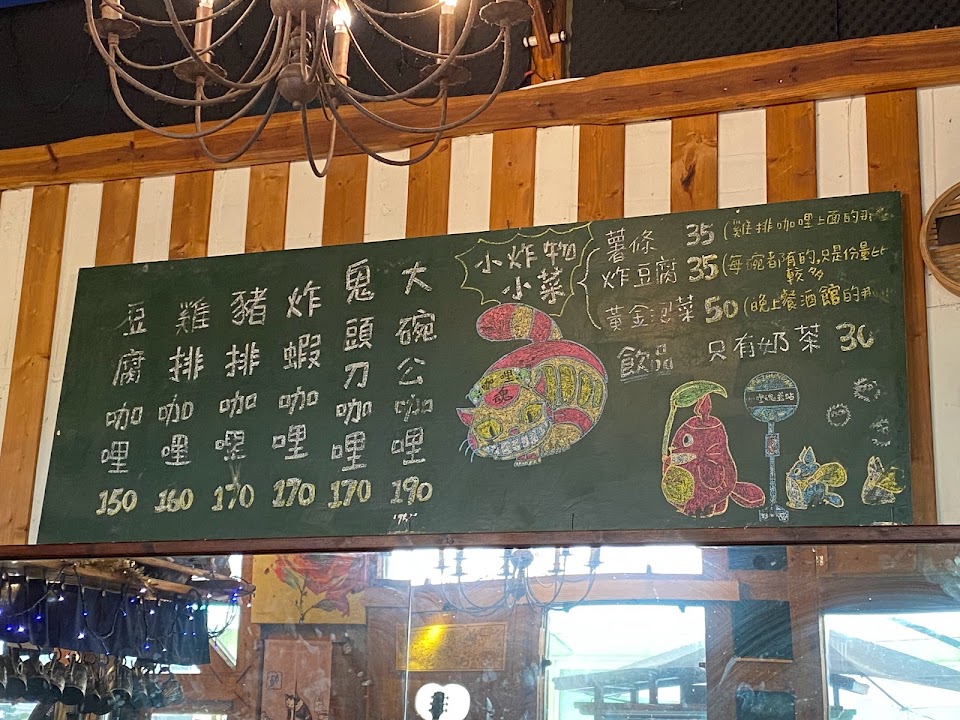 大碗公咖哩 190
鬼頭刀咖哩 170
炸蝦咖哩 170
豬排咖哩 170
雞排咖哩 160
豆腐咖哩 150
小炸物
小菜
薯條 35 (雞排咖哩上面的那
炸豆腐 35 (每碗都有的,只是份量比
較多
黃金泡菜 50 (晚上餐酒館的那
飲品 只有奶茶 30
咖哩
魂